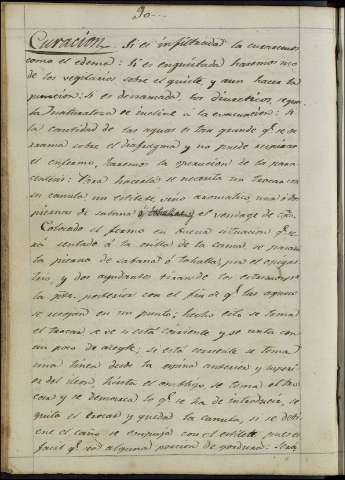 90...
Curacion. Si es infiltracion la curaremos
como el edema: Si es enquistada haremos uso
de los vegigatorios sobre el quiste, y aun hacer la
puncion: si es derramada, los diureticos, segun
la Naturaleza se incline á la evacuacion: si
la cantidad de las aguas es tan grande qe se de-
rrama sobre el diafragma y no puede respirar
el enfermo, haremos la operacion de la para-
centesis: Para hacerla se necesita un trocar con
su canula, un estilete, vino aromatico, una ó dos
piezas de sabana ó toballas, y el vendage de
Colocado el fermo en buena situacion qe se-
rá sentado á la orilla de la cama, se pasará
la pieza de sabana ó tohalla, por el epigas-
trio, y dos ayudantes tiran de los estremos
la pte. posterior con el fin de qe las aguas
se recojan en un punto; hecho esto se toma
el trocar se ve si está corriente y se unta con
un poco de aceyte; si está corriente se toma
una linea desde la espina anterior y superior
del ileon, hasta el ombligo se toma el tro-
car y se demarca lo qe se ha de introducir, se
quita el trocar y queda la canula, si se deti-
ene el caño se empuja con el estilete pues es
facil qe sea alguna porcion de gordura: